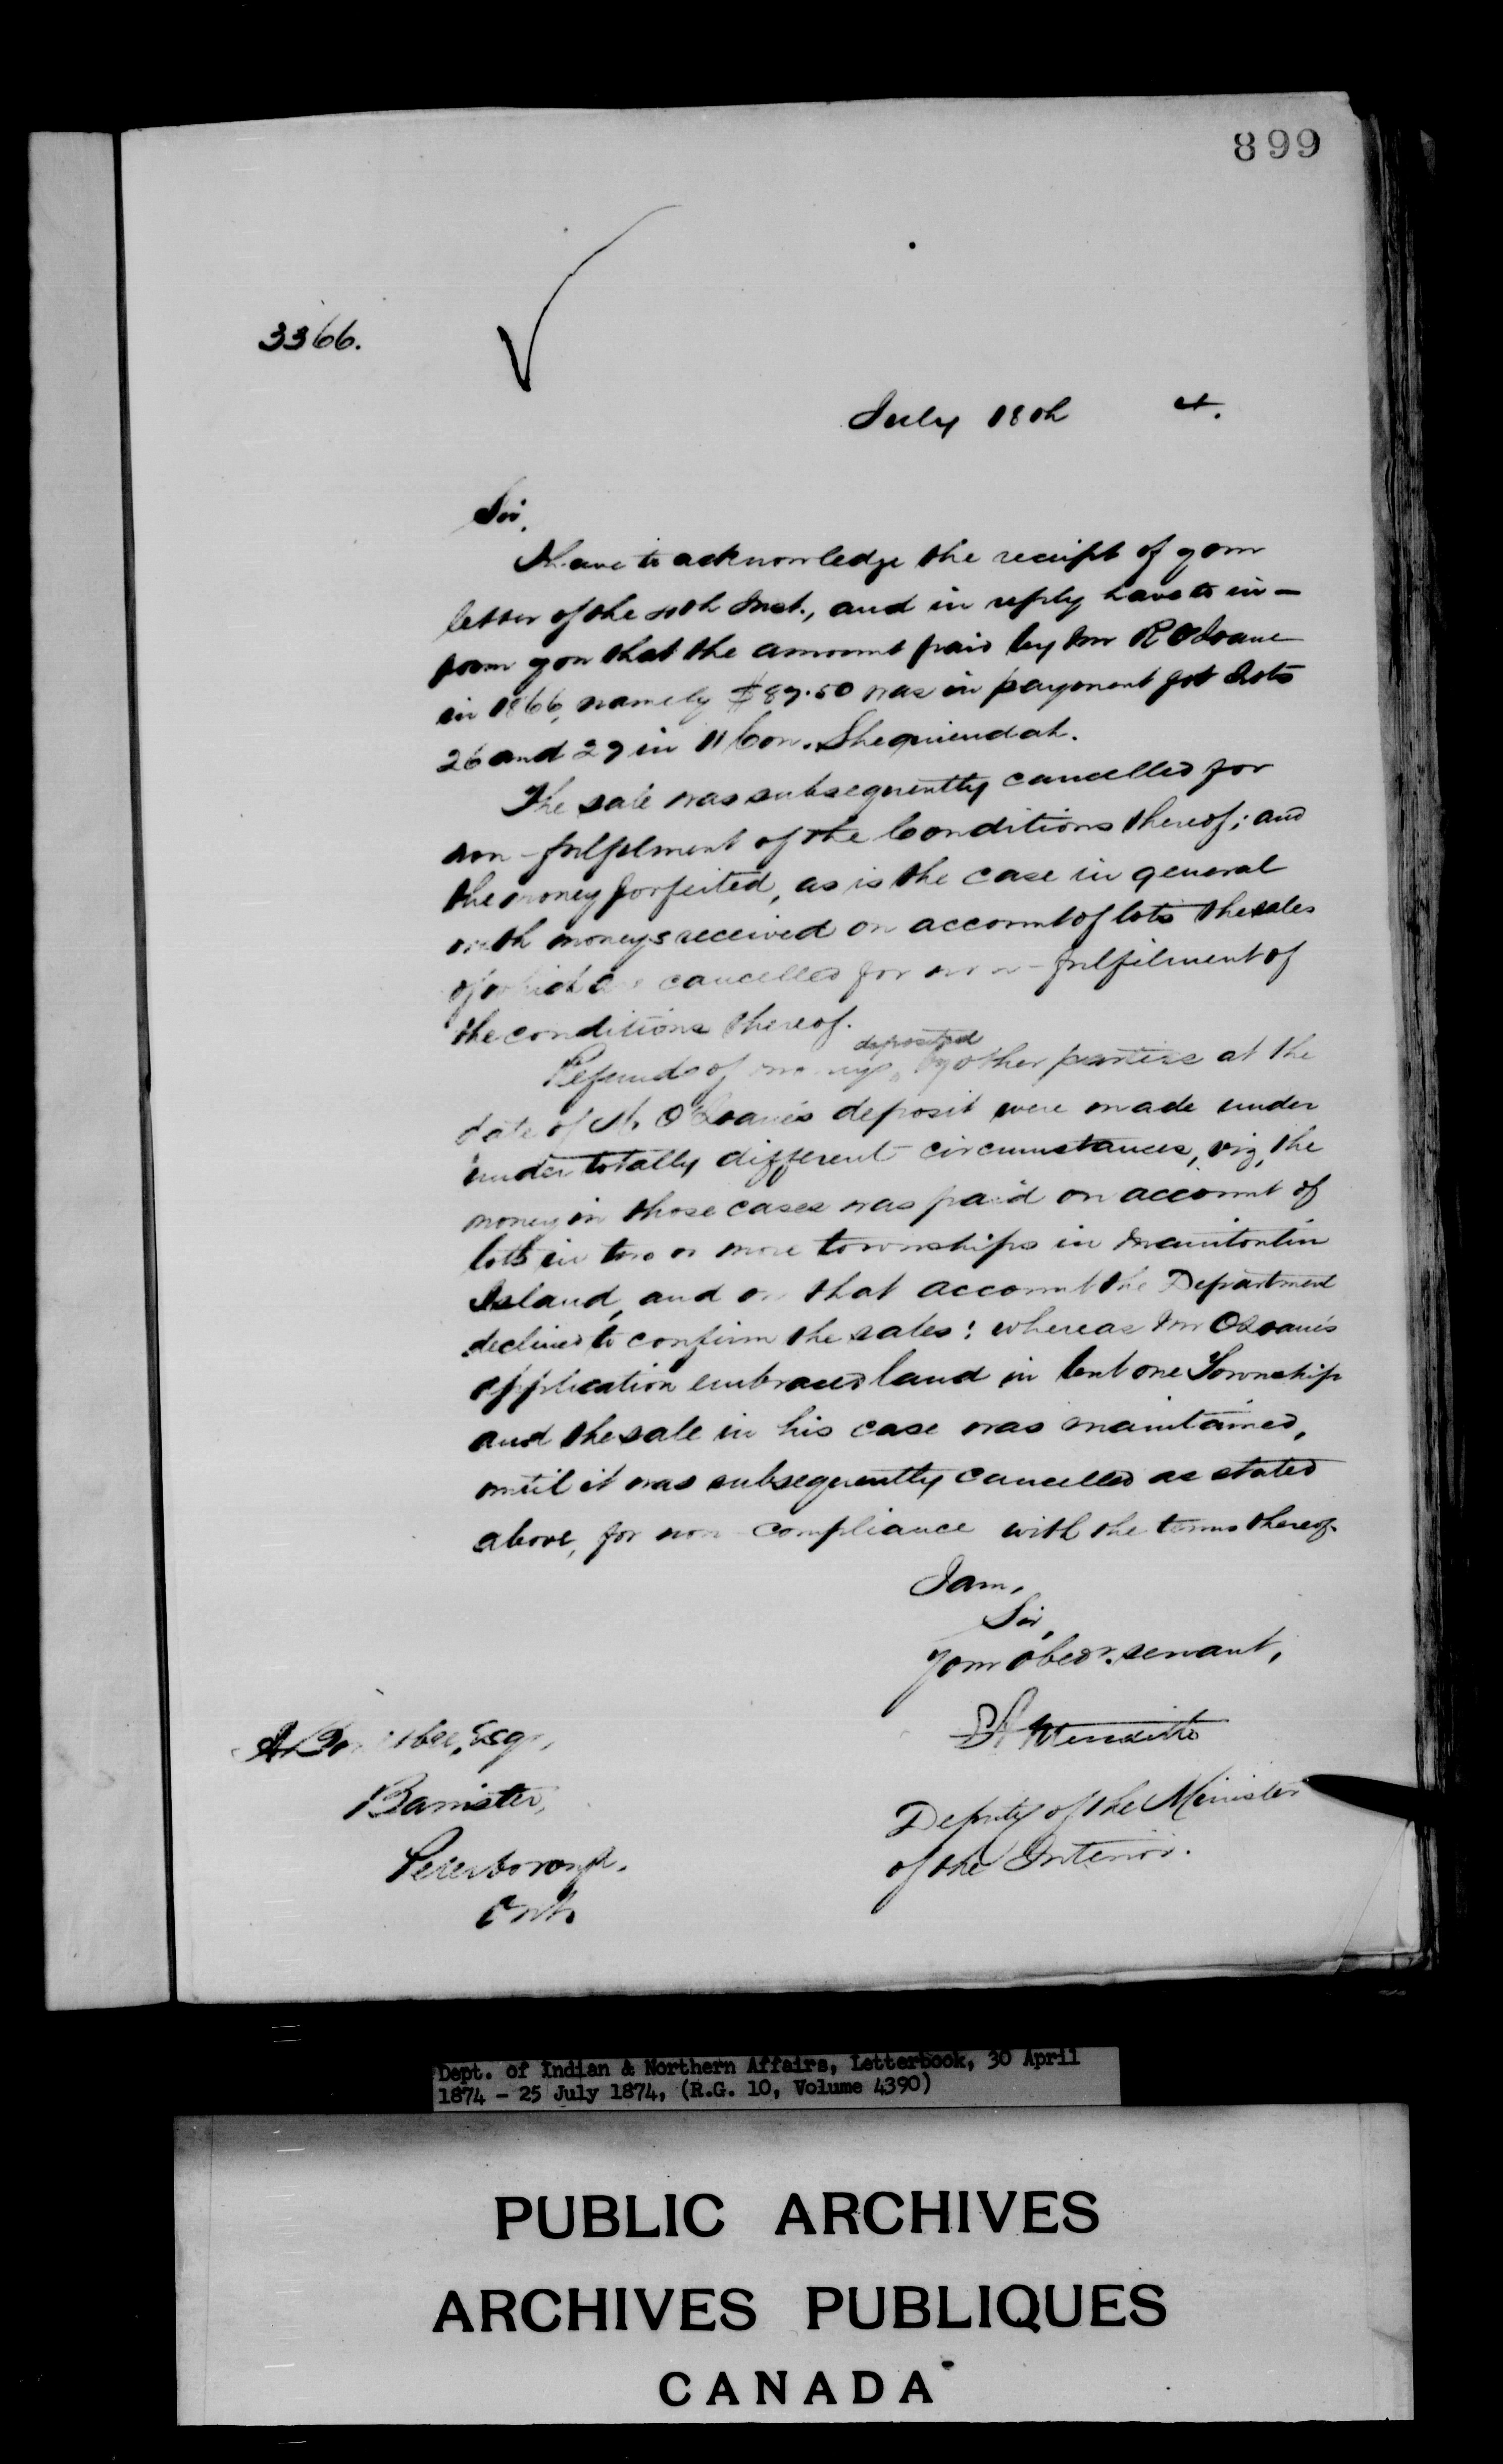 899
3366.
July 18th 4.
Sir,
I have to acknowledge the receipt of your
letter of the 10th Inst., and in reply have to in-
form you that the amount paid by Mr R O'Doane
in 1866, namely $87.50 was in payment for Lots
26 and 27 in 11 Con. Sheguiendah.
The sale was subsequently cancelled for
non-fulfilment of the Conditions thereof; and
the money forfeited, as is the case in general
with moneys received on account of lots the sales
of which are cancelled for non-fulfilment of
the conditions thereof.
deposited
Refunds of moneys by other parties at the
date of Mr deposit were made under
under totally different circumstances, viz, the
money in those cases was paid on account of
lots in two or more townships in Manitoulin
Island, and on that account the Department
declined to confirm the sales; whereas Mr
application embraced land in but one Township
and the sale in his case was maintained,
until it was subsequently cancelled as stated
above, for non-compliance with the terms thereof.
I am,
Sir,
Your obedt. servant,
E A Meredith
Deputy of the Minister
of the Interior.
A. Esq.,
Barrister,
Peterborough.
Ont.
Dept. of Indian & Northern Affairs, Letterbook, 30 April
1874 - 25 July 1874, (R.G. 10, Volume 4390)
PUBLIC ARCHIVES
ARCHIVES PUBLIQUES
CANADA